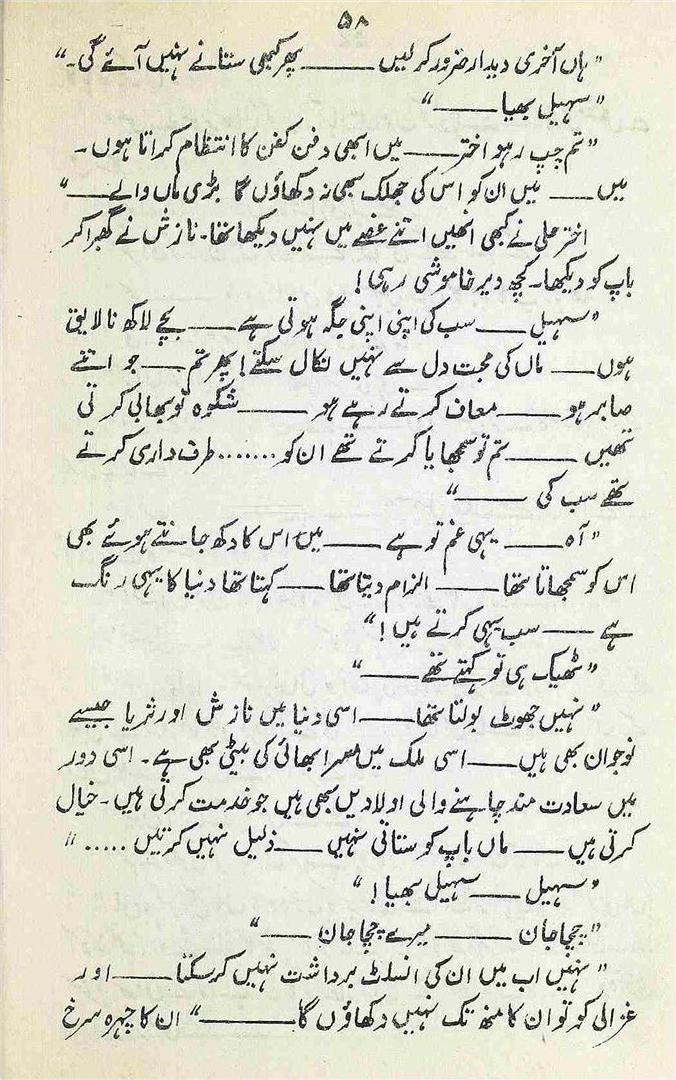 ۵۸
"ہاں آخری دیدار ضرور کر لیں ——— پھر کبھی ستانے نہیں آئے گی۔"
"سہیل بھیا ———"
"تم چپ رہو اختر —— میں ابھی دفن کفن کا انتظام کراتا ہوں۔
میں —— میں ان کو اس کی جھلک بھی نہ دکھاؤں گا بڑی ماں والے ——"
اختر علی نے کبھی انھیں اتنے غصے میں نہیں دیکھا تھا۔ نازش نے گھبرا کر
باپ کو دیکھا۔ کچھ دیر خاموشی رہی!
"سہیل —— سب کی اپنی اپنی جگہ ہوتی ہے —— بچے لاکھ نالایق
ہوں —— ماں کی محبت دل سے نہیں نکال سکتے! پھر تم —— جو اتنے
صابر ہو ——— معاف کرتے رہے ہو ——— شکوہ تو بھابی کرتی
تھیں ——— تم تو سمجھایا کرتے تھے ان کو ....... طرف داری کرتے
تھے سب کی ———"
"آہ —— یہی غم تو ہے —— میں اس کا دکھ جانتے ہوئے بھی
اس کو سمجھاتا تھا ——— الزام دیتا تھا —— کہتا تھا دنیا کا یہی رنگ
ہے —— سب یہی کرتے ہیں!"
"ٹھیک ہی تو کہتے تھے ———"
"نہیں جھوٹ بولتا تھا —— اسی دنیا میں نازش اور ثریا جیسے
نوجوان بھی ہیں —— اسی ملک میں بھائی کی بیٹی بھی ہے۔ اسی دور
میں سعادت مند چاہنے والی اولادیں بھی ہیں جو خدمت کرتی ہیں۔ خیال
کرتی ہیں —— ماں باپ کو ستاتی نہیں —— ذلیل نہیں کرتیں ....."
"سہیل —— سہیل بھیا!"
"چچا جان ——— میرے چچا جان ———"
"نہیں اب میں ان کی انسلٹ برداشت نہیں کر سکتا —— اور
غزالی کو تو ان کا منھ تک نہیں دکھاؤں گا ———" ان کا چہرہ سرخ